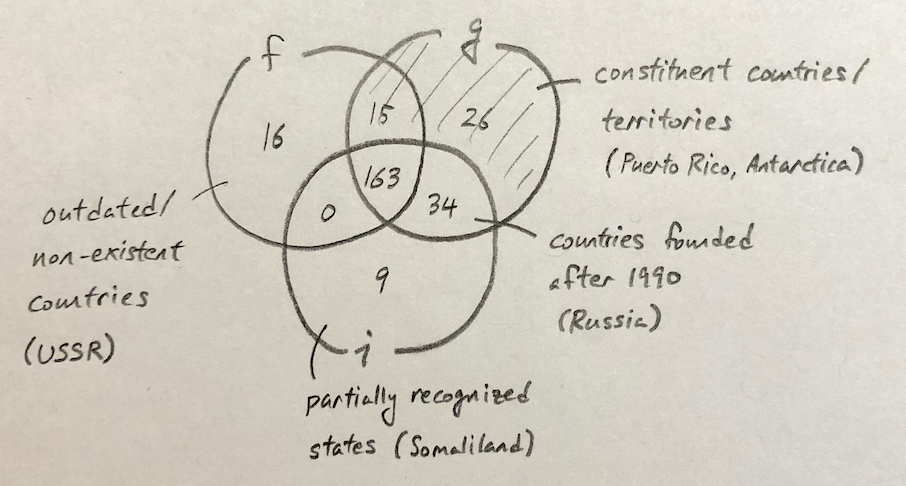 f
g
constituent countries/
territories
(Puerto Rico, Antarctica)
16
15
26
163
0
34
outdated/
non-existent
countries
(USSR)
countries founded
after 1990
(Russia)
9
j
partially recognized
states (Somaliland)